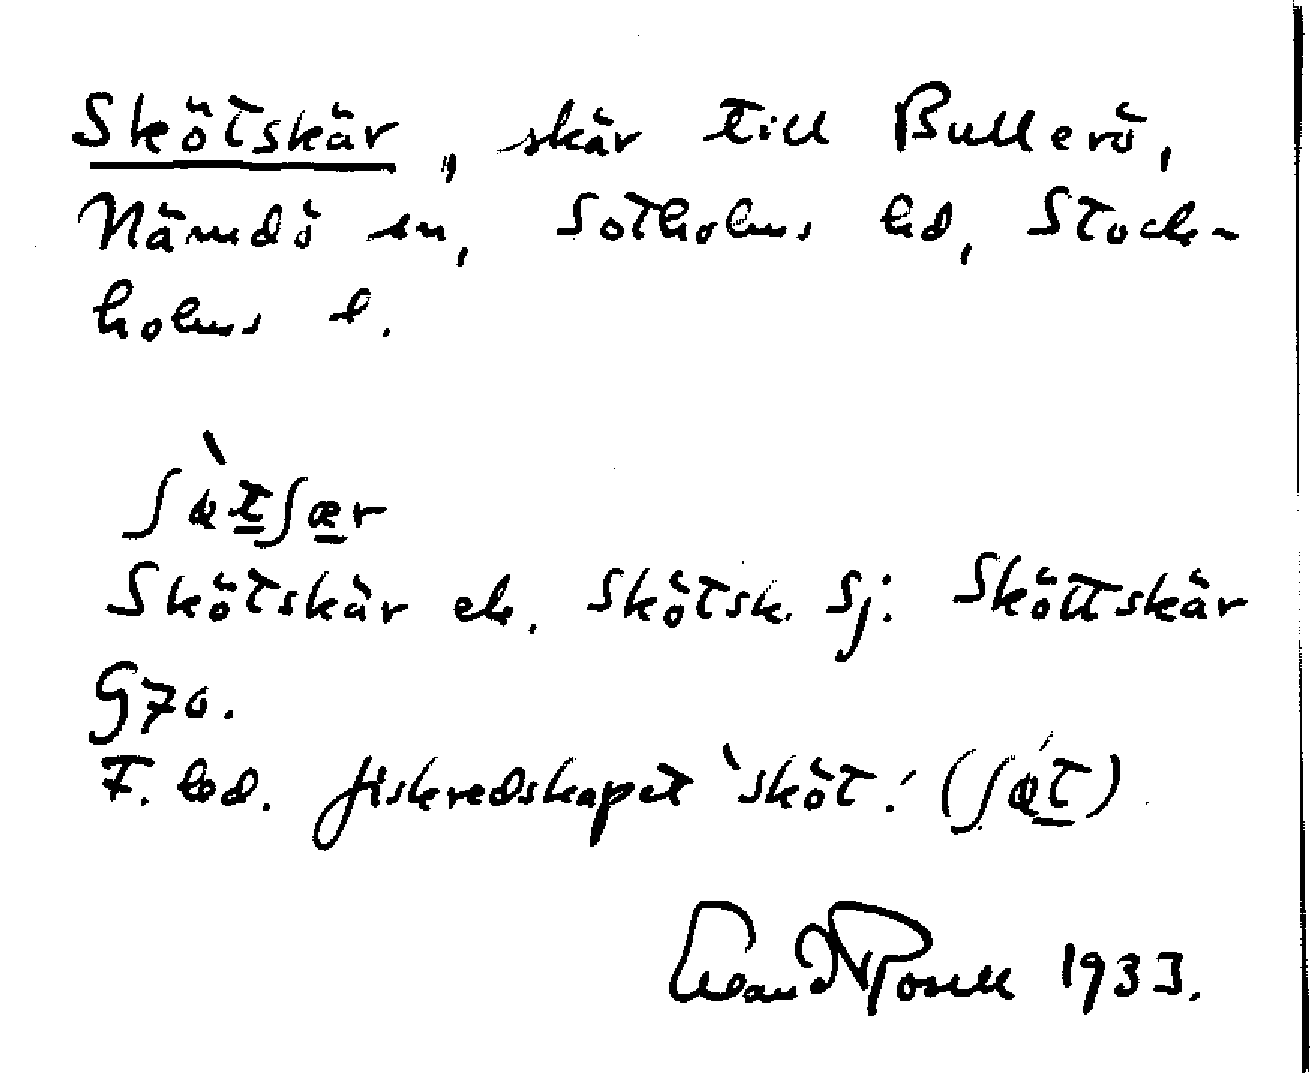 Skötskär, skär till Bullerö,
Nämdö sn, Sotholms hd, Stock-
holms l.
ʃø̀tʃær
Skötskär ek. Skötsk. Sj: Sköttskär
G70.
F. led. fiskredskapet 'sköt'. (ʃǿt)
1933.